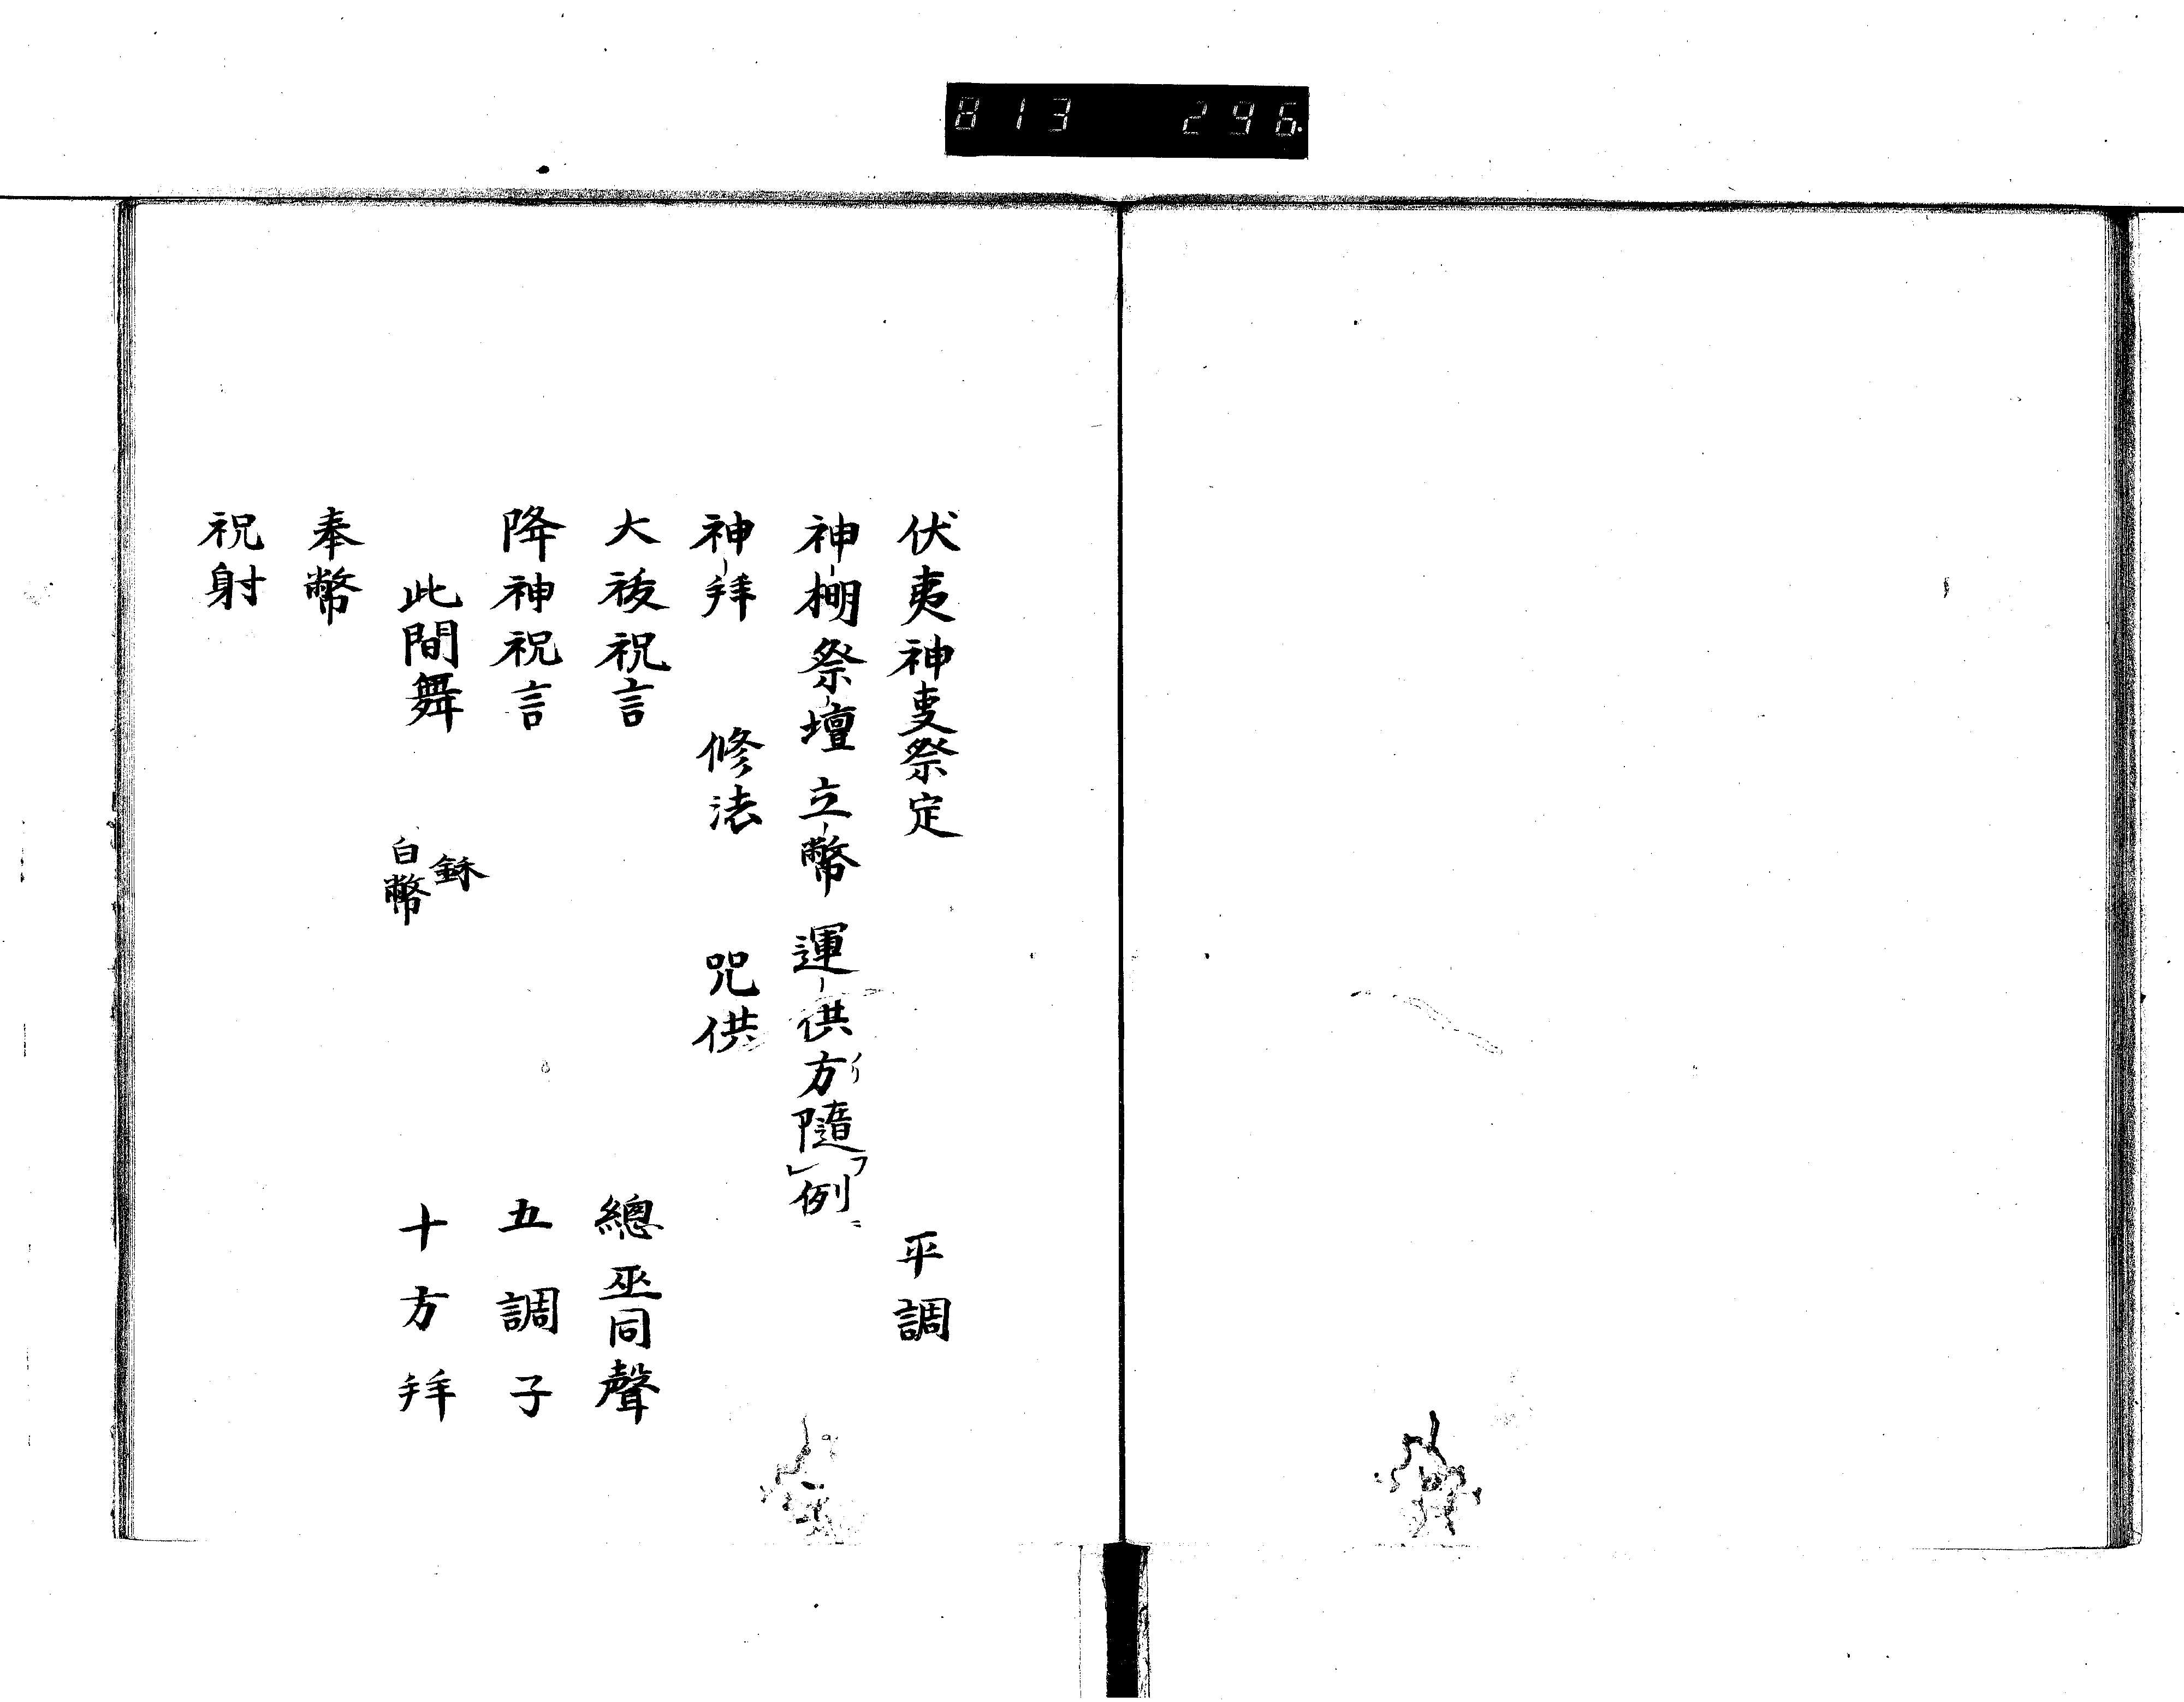 813 296
伏夷神叓祭定 平調
神棚祭壇立幣運供方随例
神拝 修法 咒供
大祓祝言 總巫同聲
降神祝言 五調子
此間舞 鉌 白幣 十方拝
奉幣
祝射